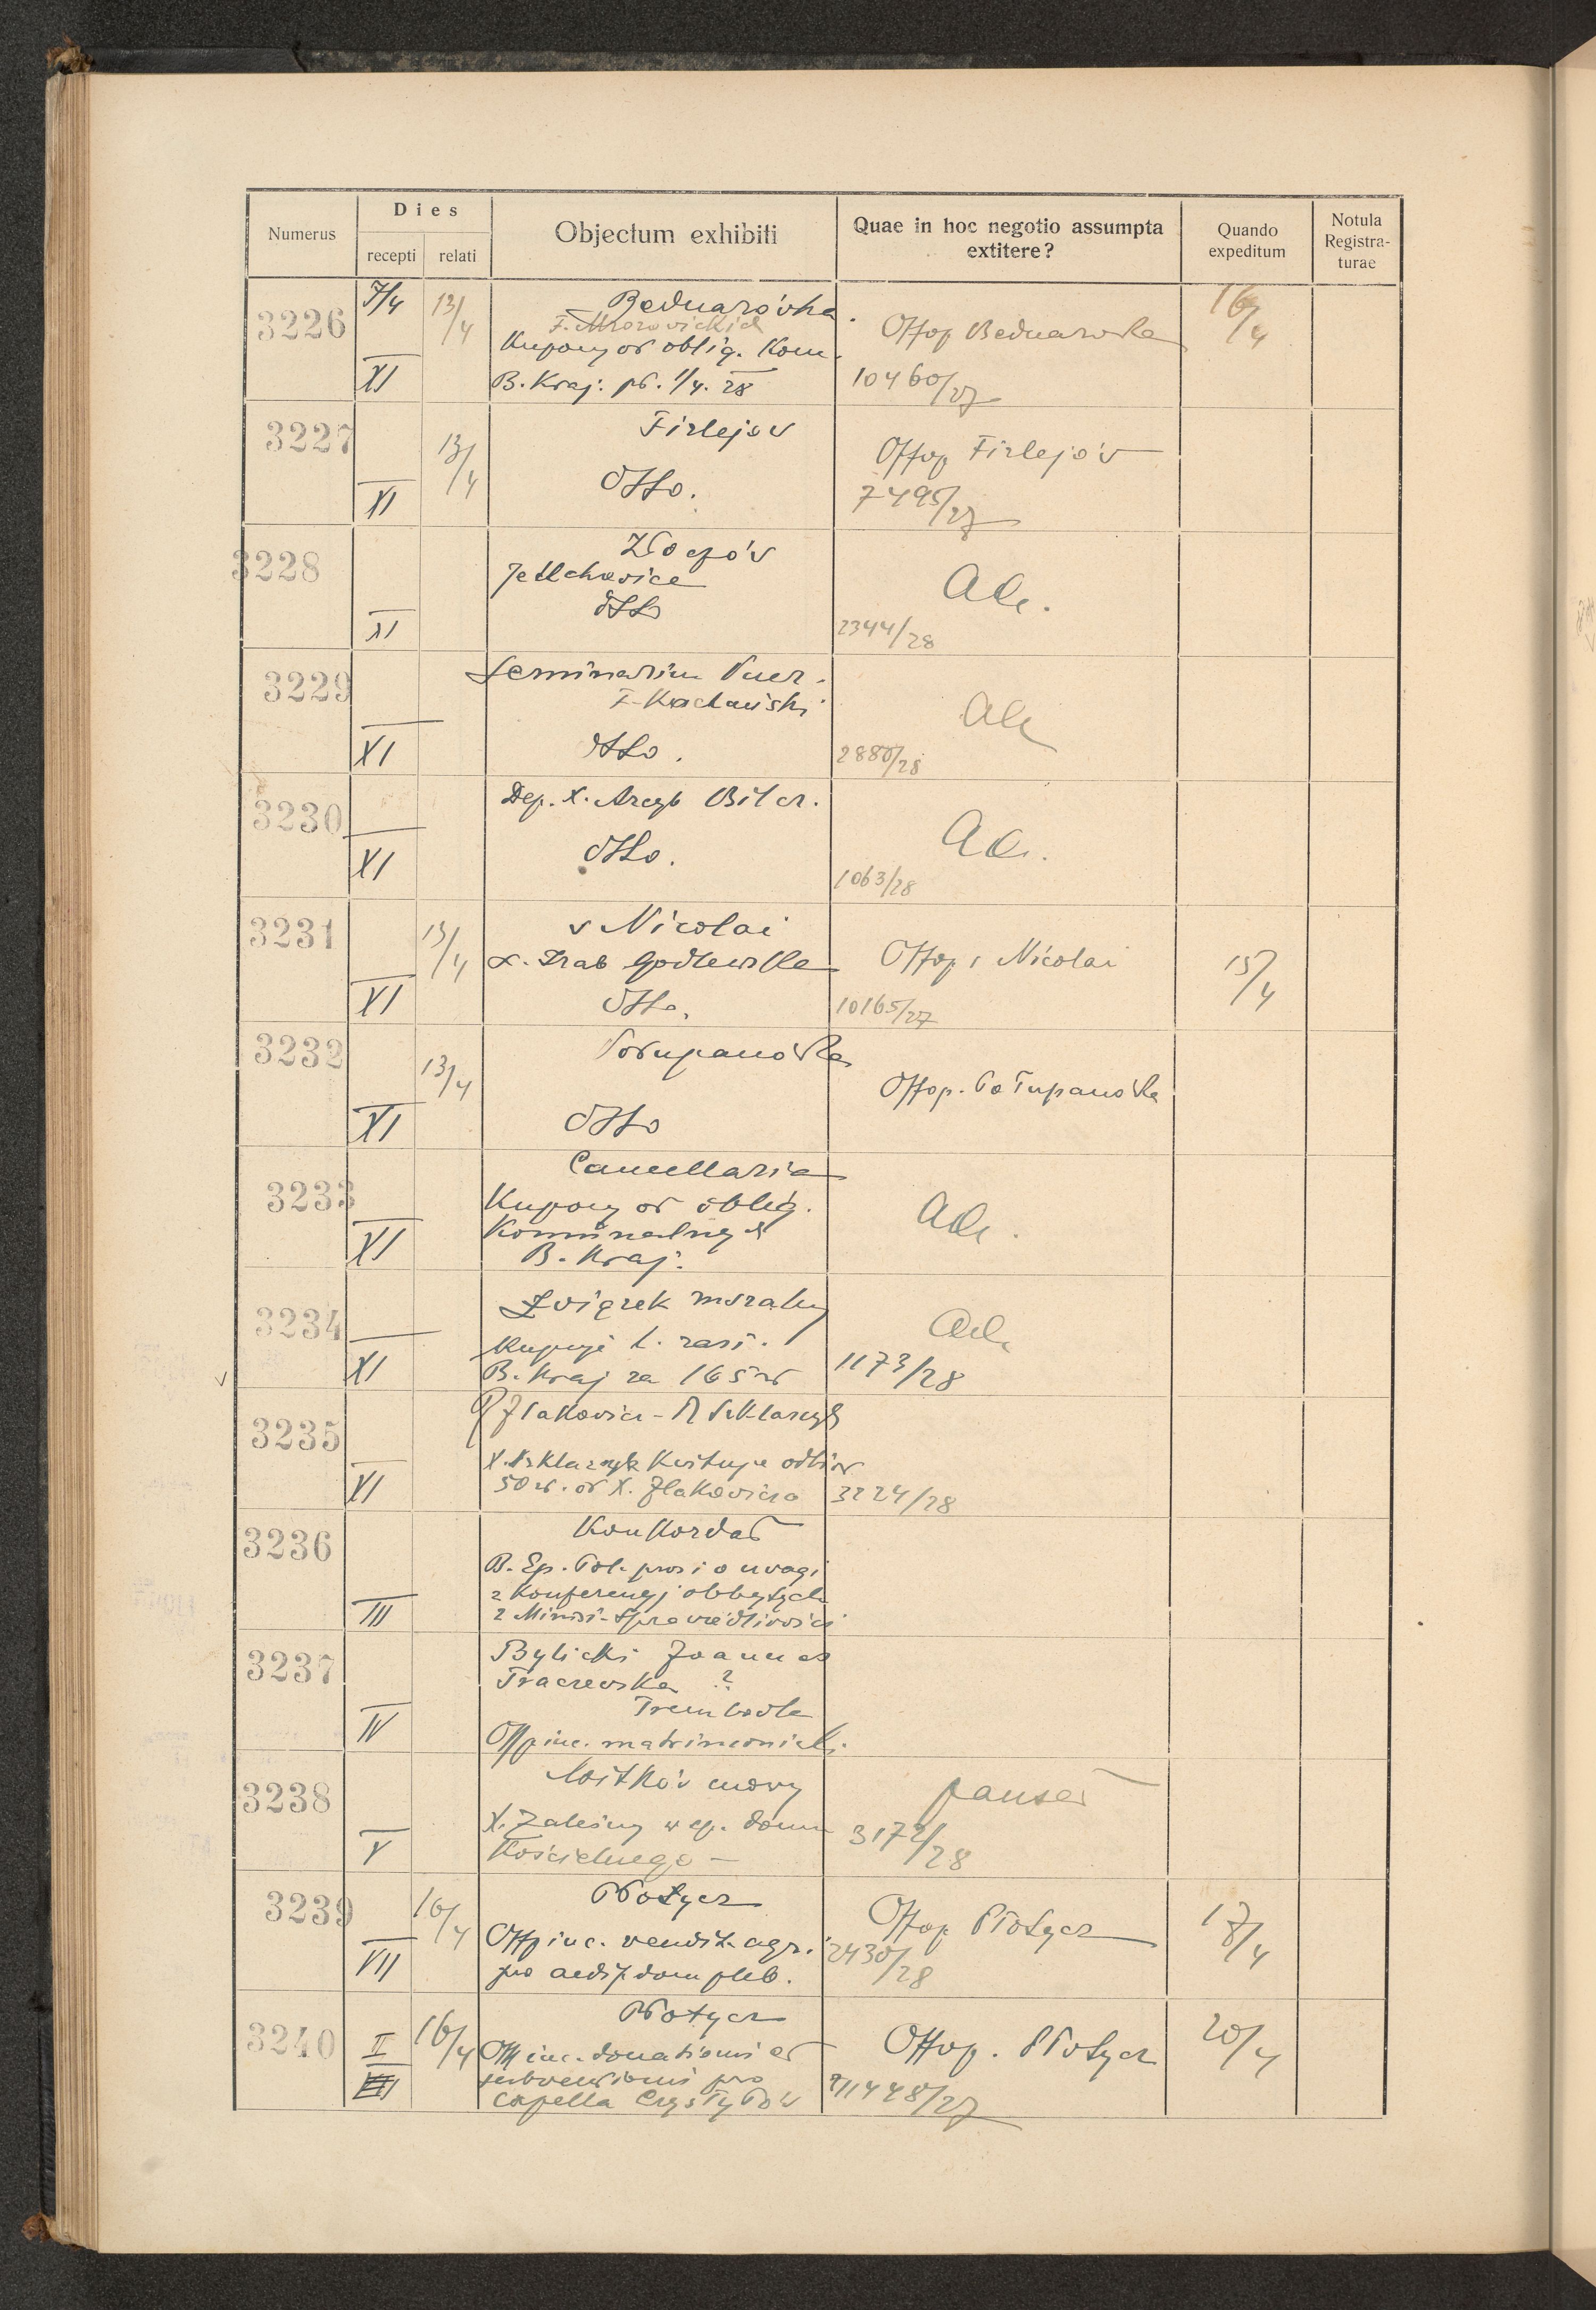 Numerus
Dies
recepti relati
Objectum exhibiti
Quae in hoc negotio assumpta
extitere?
Quando
expeditum
Notula
Registra-
turae
3226 7/4 13/4 XI
Bednarówka
F. Mrozovickich
Kupony od oblig. Kom.
B. Kraj. pł. 1/4. 28
Offop Bednarówka
10460/27
16/4
3227 13/4 XI
Firlejów
dtto.
Offop Firlejów
7495/27
3228 XI
Złoczów
Jelechowice
dtto
Ada.
2344/28
3229 XI
Seminarium Puer.
F. Kochański
dtto.
Ada
2880/28
3230 XI
Dep. X. Arcyb Bilcz.
dtto.
Ada.
1063/28
3231 13/4 XI
s Nicolai
x. Grab Godlewska
dtto.
Offop s Nicolai
10165/27
15/4
3232 13/4 XI
Tołupanówka
dtto
Offop. Tołupanówka
3233 XI
Cancellaria
Kupony od oblig.
Komunalnych
B. Kraj.
Ada.
3234 XI
Związek mszalny
Kupuje l. zast.
B. Kraj za 165 zł
Ada
1173/28
3235 XI
X. Szklarzyk Kwituje odbiór
50 zł. od X. Żlakowicza
3224/28
3236 III
Konkordat
B. Ep. Pol. prosi o uvagi
z Konferencyj odbytych
z Minist. Sprawiedliwości
3237 IV
Bylicki Joannes
Traczewska ?
Trembowla
Offp inc. matrimoniali.
3238 V
Witków nowy
X. Zaleśny w sp. domu
Kościelnego -
pauset
3172/28
3239 16/4 VII
Płotycz
Offp inc. vendit. agri.
pro aedif. dom pleb.
Offop Płotycz
2430/28
17/4
3240 II 16/4
Płotycz
Off inc. donationi et
subventioni pro
capella Czystyłów
Offop. Płotycz
11448/27
20/4